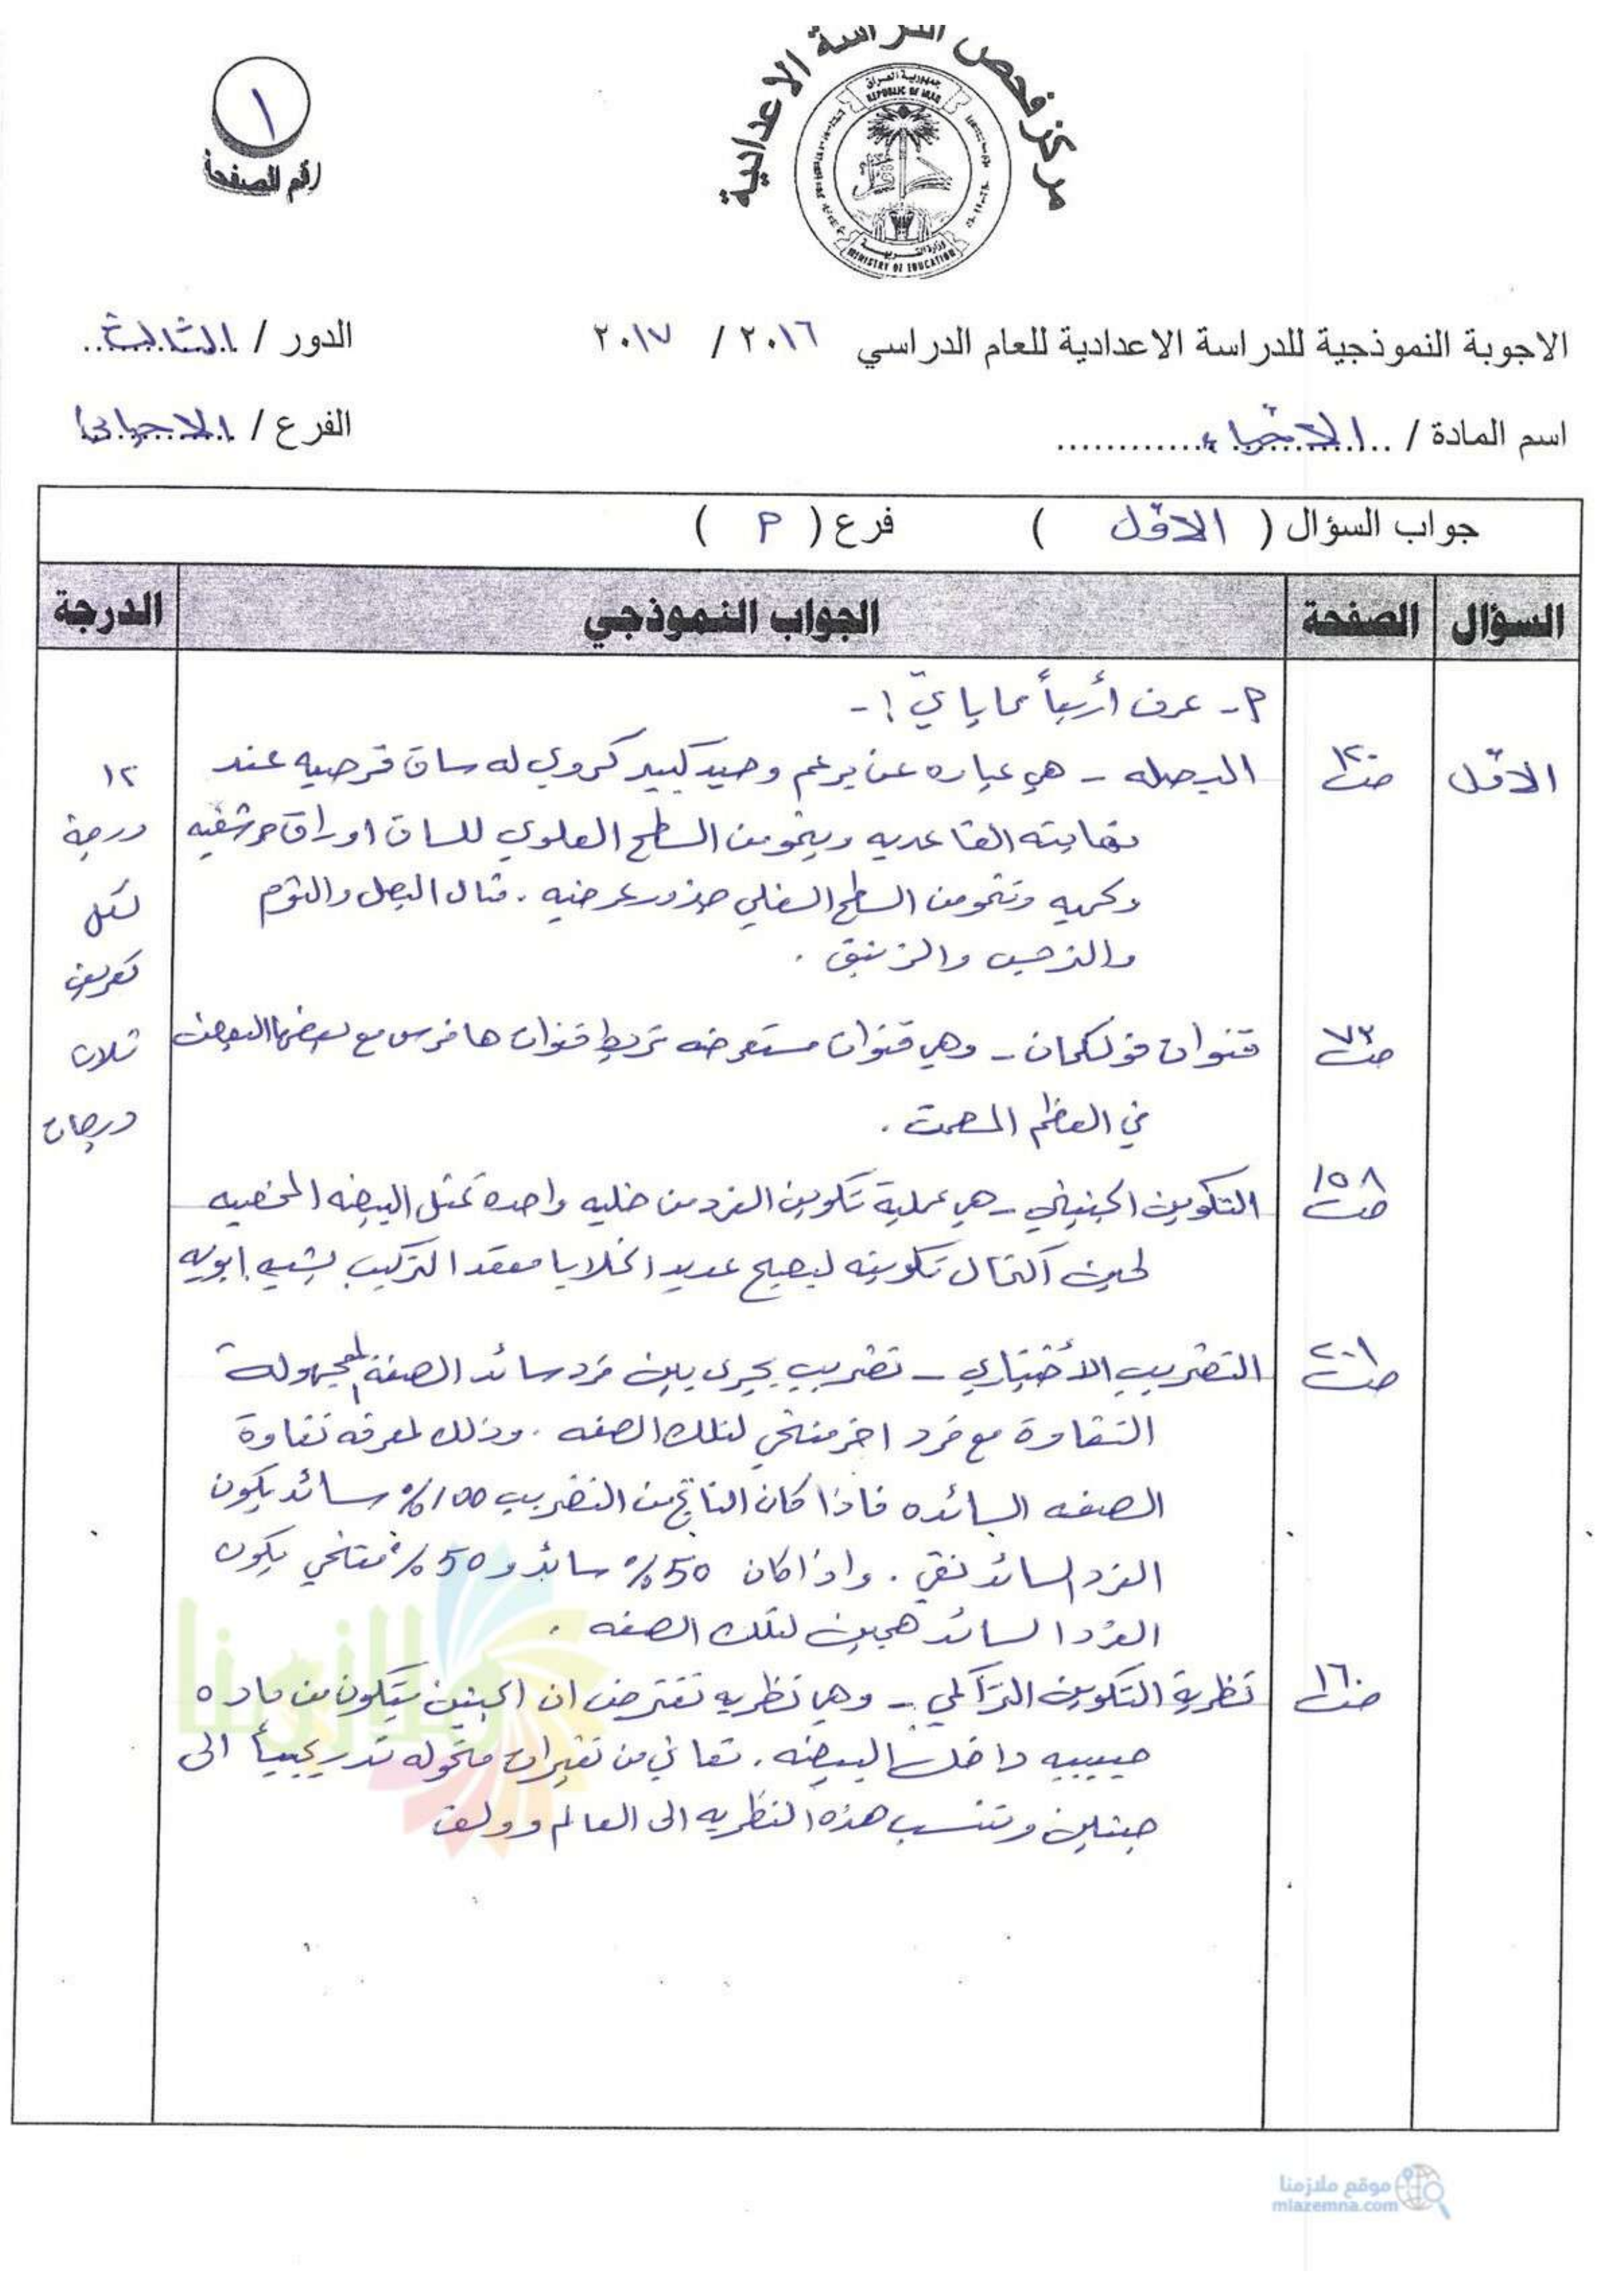 مركز فحص الدراسة الاعدادية
جمهورية العراق
REPUBLIC OF IRAQ
وزارة التربية
MINISTRY OF EDUCATION
١
رقم الصفحة
الاجوبة النموذجية للدراسة الاعدادية للعام الدراسي ٢٠١٦ / ٢٠١٧
الدور / الثالث
اسم المادة / الاحياء
الفرع / الاحيائي
جواب السؤال ( الاول ) فرع ( أ )
السؤال الصفحة الجواب النموذجي الدرجة
أ- عرف أربعاً مما يأتي :-
الاول ص١٢٠ البصله - هي عباره عن برعم وحيد كبير كروي له ساق قرصيه عند ١٢
نهايته القاعديه وينمو من السطح العلوي للساق اوراق حرشفيه درجة
لحميه وتنمو من السطح السفلي جذور عرضيه . مثال البصل والثوم لكل
والنرجس والزنبق . تعريف
ص٧٣ قنوات فولكمان - وهي قنوات مستعرضه تربط قنوات هافرس مع بعضها البعض ثلاث
في العظم المصمت . درجات
ص١٥٨ التكوين الجنيني - هي عملية تكوين الفرد من خليه واحده تمثل البيضه المخصبه
لحين اكتمال تكوينه ليصبح عديد الخلايا معقد التركيب يشبه ابويه
ص٢٠١ التضريب الأختباري - تضريب يجرى بين فرد سائد الصفة المجهولة
النقاوة مع فرد اخر متنحي لتلك الصفه . وذلك لمعرفه نقاوة
الصفه السائده فاذا كان الناتج من التضريب 100% سائد يكون
الفرد السائد نقي . واذا كان 50% سائد و 50% متنحي يكون
الفرد السائد هجين لتلك الصفه .
ص١٦٠ نظرية التكوين التراكمي - وهي نظريه تفترض ان الجنين يتكون من ماده
حبيبيه داخل البيضه . تعاني من تغيرات متحوله تدريجياً الى
جنين وتنسب هذه النظريه الى العالم وولف
ملازمنا
موقع ملازمنا
mlazemna.com